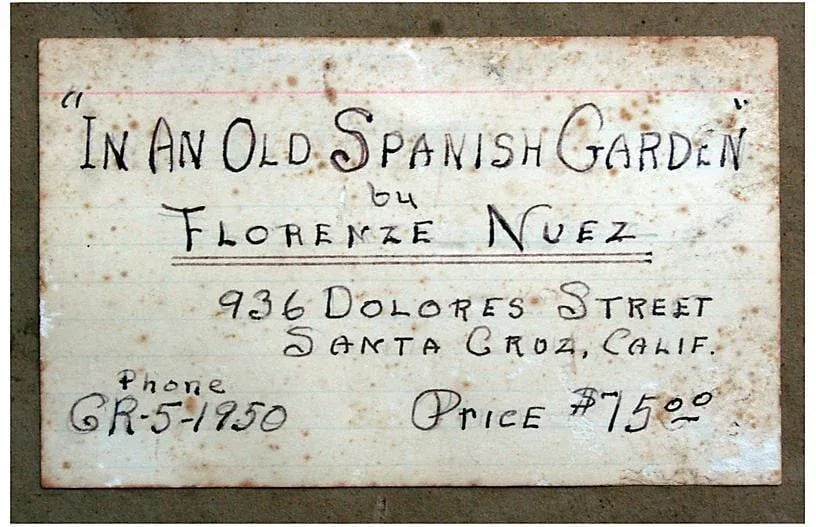 "IN AN OLD SPANISH GARDEN"
by
FLORENZE NUEZ
936 DOLORES STREET
SANTA CRUZ, CALIF.
Phone
GR-5-1950
PRICE $75.00